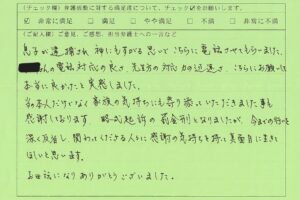 (チェック欄) 弁護活動に対する満足度について、チェック☑をお願いします。
☑ 非常に満足 □ 満足 □ やや満足 □ 不満 □ 非常に不満
(ご記入欄) ご意見、ご感想、担当弁護士への一言など
息子が逮捕され、神にもすがる思いでこちらに電話させてもらいました。
さんの電話対応の良さ、先生方の対応力の迅速さ、こちらにお願いして
本当に良かったと実感しました。
本人だけでなく家族の気持ちにも寄り添っていただきました事も
感謝しております。略式起訴の罰金刑となりましたが、今までの行いを
深く反省し、関わってくださる人々に感謝の気持ちを持ち真面目に生きて
ほしいと思います。
お世話になりありがとうございました。